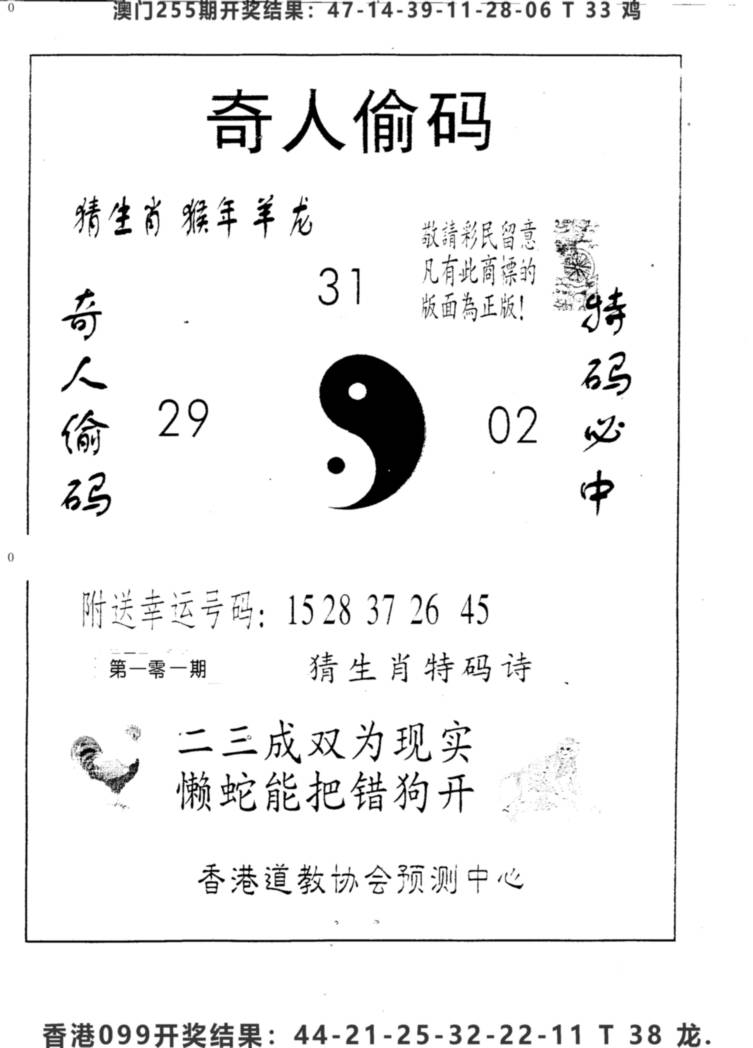 澳门255期开奖结果：47-14-39-11-28-06 T 33 鸡
0
奇人偷码
猜生肖 猴年羊龙
敬請彩民留意
凡有此商標的
版面為正版!
31
奇人偷码
29
02
特码必中
0
附送幸运号码: 15 28 37 26 45
第一零一期
猜生肖特码诗
二三成双为现实
懒蛇能把错狗开
香港道教协会预测中心
香港099开奖结果：44-21-25-32-22-11 T 38 龙.